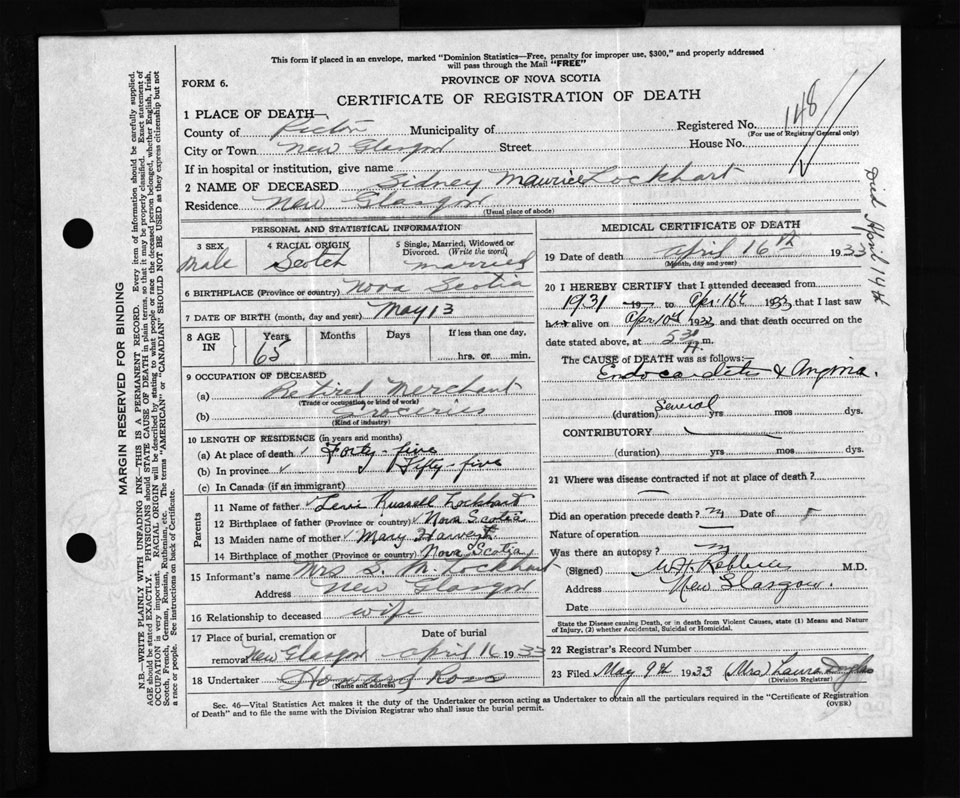 This form if placed in an envelope, marked "Dominion Statistics—Free, penalty for improper use, $300," and properly addressed
will pass through the Mail "FREE"
FORM 6.
PROVINCE OF NOVA SCOTIA
CERTIFICATE OF REGISTRATION OF DEATH
1 PLACE OF DEATH—
County of Pictou Municipality of
Registered No. 148
(For use of Registrar General only)
City or Town New Glasgow Street House No.
If in hospital or institution, give name
2 NAME OF DECEASED Sidney Maurice Lockhart
Residence New Glasgow
(Usual place of abode)
Died April 14th
PERSONAL AND STATISTICAL INFORMATION
3 SEX
Male
4 RACIAL ORIGIN
Scotch
5 Single, Married, Widowed or
Divorced. (Write the word)
married
6 BIRTHPLACE (Province or country) Nova Scotia
7 DATE OF BIRTH (month, day and year) May 13
8 AGE
IN
Years
65
Months
Days
If less than one day,
hrs. or min.
9 OCCUPATION OF DECEASED
(a) Retired Merchant
(Trade or occupation or kind of work)
(b) Groceries
(Kind of industry)
10 LENGTH OF RESIDENCE (in years and months)
(a) At place of death Forty-five
(b) In province Fifty-five
(c) In Canada (if an immigrant)
Parents
11 Name of father Levi Russell Lockhart
12 Birthplace of father (Province or country) Nova Scotia
13 Maiden name of mother Mary
14 Birthplace of mother (Province or country) Nova Scotia
15 Informant's name Mrs S. M. Lockhart
Address New Glasgow
16 Relationship to deceased wife
17 Place of burial, cremation or
removal New Glasgow
Date of burial
April 16 1933
18 Undertaker Howard Ross
(Name and address)
MEDICAL CERTIFICATE OF DEATH
19 Date of death April 16th 1933
(Month, day and year)
20 I HEREBY CERTIFY that I attended deceased from
1931 19 to Apr. 16th 1933, that I last saw
h alive on Apr 10th 1933 and that death occurred on the
date stated above, at 5.30 A m.
The CAUSE of DEATH was as follows:—
Endocarditis & Angina.
(duration) Several yrs mos dys.
CONTRIBUTORY
(duration) yrs mos dys.
21 Where was disease contracted if not at place of death?
Did an operation precede death? Date of
Nature of operation
Was there an autopsy?
(Signed) W.H. M.D.
Address New Glasgow.
Date
State the Disease causing Death, or in death from Violent Causes, state (1) Means and Nature
of Injury, (2) whether Accidental, Suicidal or Homicidal.
22 Registrar's Record Number
23 Filed May 9th 1933 (Mrs) Laura Douglas
(Division Registrar)
Sec. 46—Vital Statistics Act makes it the duty of the Undertaker or person acting as Undertaker to obtain all the particulars required in the "Certificate of Registration
of Death" and to file the same with the Division Registrar who shall issue the burial permit.
(OVER)
MARGIN RESERVED FOR BINDING
N.B.—WRITE PLAINLY WITH UNFADING INK—THIS IS A PERMANENT RECORD. Every item of information should be carefully supplied.
AGE should be stated EXACTLY. PHYSICIANS should STATE CAUSE OF DEATH in plain terms, so that it may be properly classified. Exact statement of
OCCUPATION is very important. RACIAL ORIGIN will be described by stating to what people or race the deceased person belonged, whether English, Irish,
Scotch, French, German, Russian, Ruthenian, etc. The terms "AMERICAN" or "CANADIAN" SHOULD NOT BE USED as they express citizenship but not
a race or people. See instructions on back of Certificate.